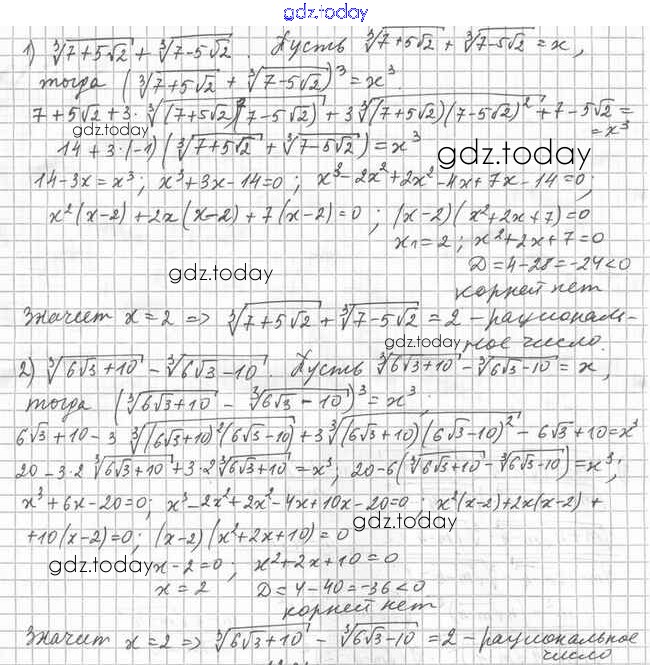 gdz.today
1) ∛(7+5√2) + ∛(7-5√2). Пусть ∛(7+5√2) + ∛(7-5√2) = x,
тогда (∛(7+5√2) + ∛(7-5√2))³ = x³.
7+5√2+3·∛((7+5√2)²(7-5√2)) + 3∛((7+5√2)(7-5√2)²) + 7-5√2 =
gdz.today
= x³
14+3·(-1)(∛(7+5√2) + ∛(7-5√2)) = x³
gdz.today
14-3x=x³; x³+3x-14=0; x³-2x²+2x²-4x+7x-14=0;
x²(x-2)+2x(x-2)+7(x-2)=0; (x-2)(x²+2x+7)=0
x₁=2; x²+2x+7=0
D=4-28=-24<0
gdz.today
корней нет
Значит x=2 => ∛(7+5√2) + ∛(7-5√2) = 2 - рациональ-
gdz.today
ное число.
2) ∛(6√3+10) - ∛(6√3-10). Пусть ∛(6√3+10) - ∛(6√3-10) = x,
тогда (∛(6√3+10) - ∛(6√3-10))³ = x³;
6√3+10-3∛((6√3+10)²(6√3-10)) + 3∛((6√3+10)(6√3-10)²) - 6√3+10=x³
20-3·2∛(6√3+10)+3·2∛(6√3+10)=x³; 20-6(∛(6√3+10)-∛(6√3-10))=x³;
x³+6x-20=0; x³-2x²+2x²-4x+10x-20=0; x²(x-2)+2x(x-2)+
+10(x-2)=0; (x-2)(x²+2x+10)=0
gdz.today
gdz.today
x-2=0; x²+2x+10=0
x=2 D=4-40=-36<0
корней нет
Значит x=2 => ∛(6√3+10) - ∛(6√3-10) = 2 - рациональное
число